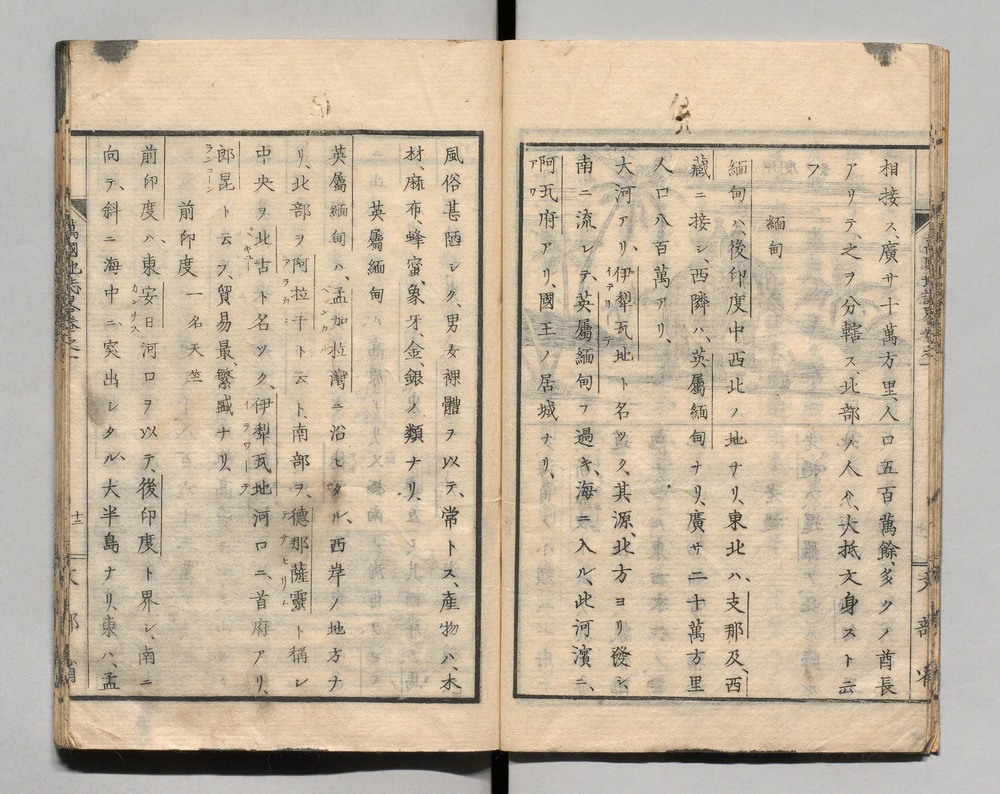 相接ス、廣サ十萬方里、人口五百萬餘、多クノ酋長
アリテ、之ヲ分轄ス、北部ノ人ハ、大抵文身スト云
フ
緬甸
緬甸ハ、後印度中西北ノ地ナリ、東北ハ、支那及、西
藏ニ接シ、西隣ハ、英屬緬甸ナリ、廣サ二十萬方里
人口八百萬アリ、
大河アリ、伊犁瓦地ト名ツク、其源、北方ヨリ發シ、
南ニ流レテ、英屬緬甸ヲ過キ、海ニ入ル、此河濱ニ、
阿瓦府アリ、國王ノ居城ナリ、
アワ
風俗甚陋シク、男女裸體ヲ以テ、常トス、產物ハ、木
材、麻布、蜂蜜、象牙、金、銀ノ類ナリ、
英屬緬甸
英屬緬甸ハ、孟加拉灣ニ沿ヒタル、西岸ノ地方ナ
リ、北部ヲ阿拉干ト云ト、南部ヲ、德那薩靈ト稱シ
中央ヲ北古ト名ツク、伊犁瓦地河口ニ、首府アリ、
郎昆ト云フ、貿易最繁盛ナリ、
ランコーン
前印度 一名天竺
前印度ハ、東、安日河口ヲ以テ、後印度ト界シ、南ニ
カンチス
向テ、斜ニ海中ニ、突出シタル、大半島ナリ、東ハ、孟
萬國地誌畧卷之一
十二
文部省